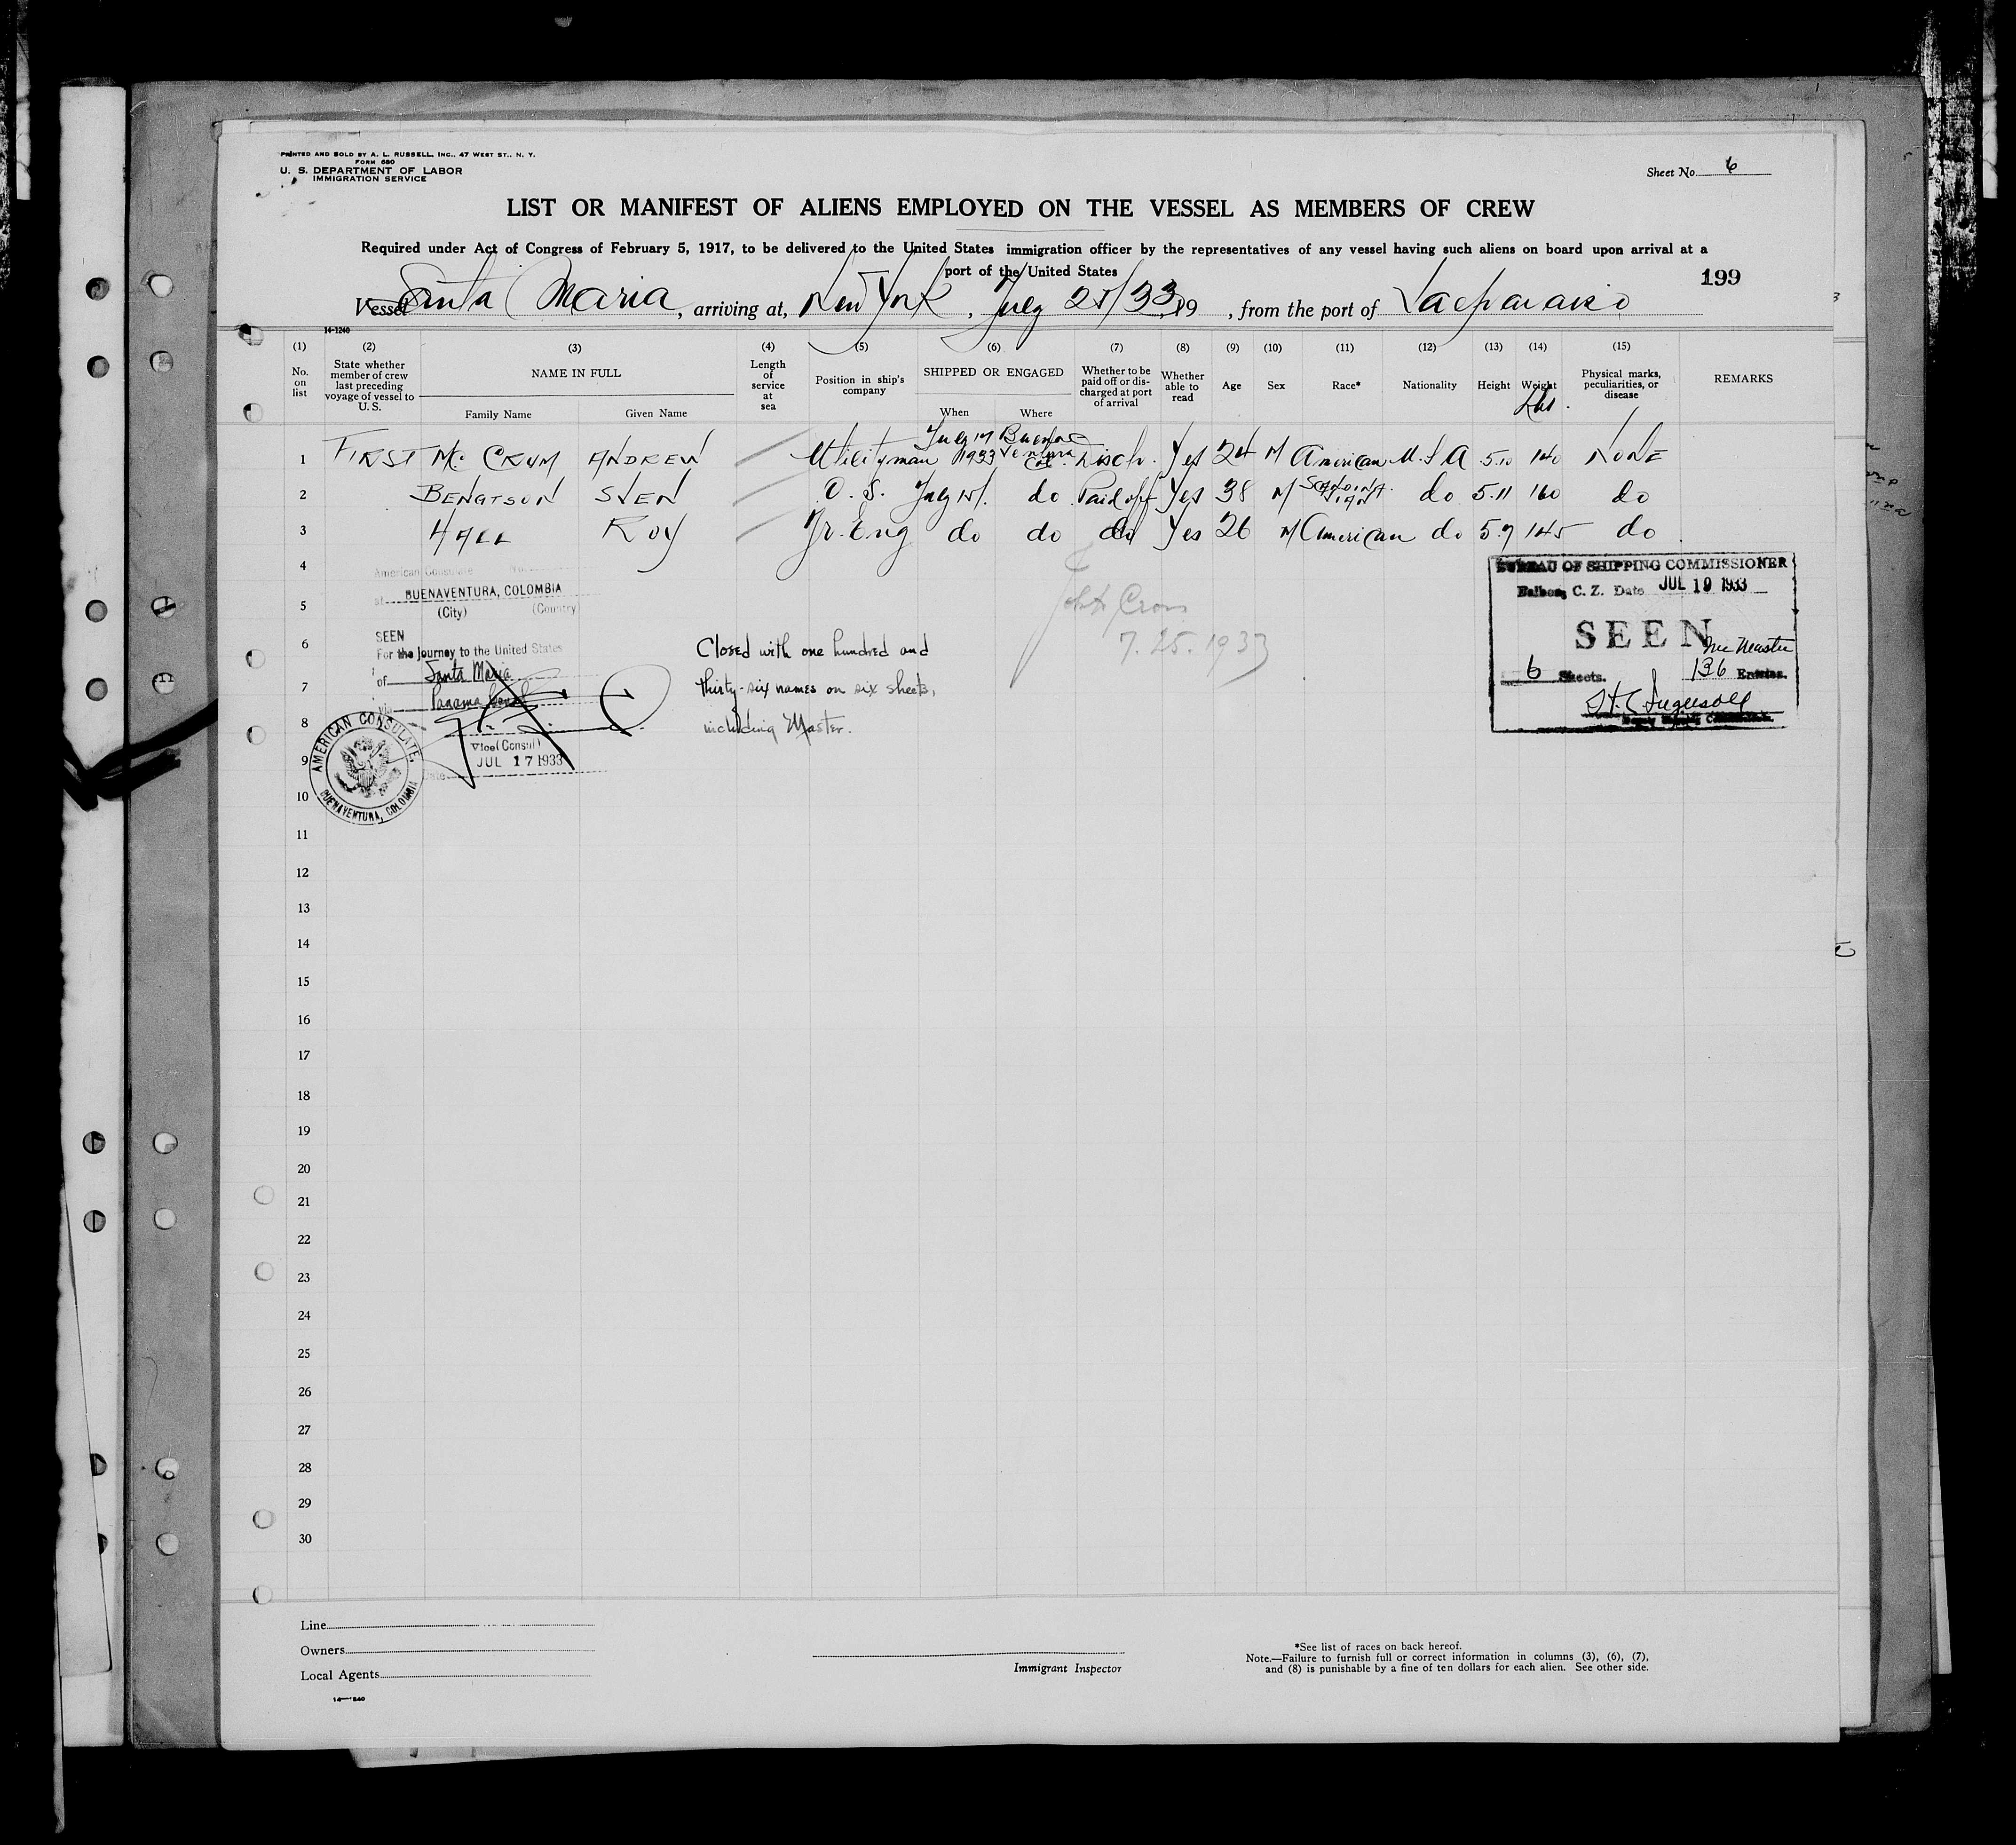 PRINTED AND SOLD BY A. L. RUSSELL, INC., 47 WEST ST., N. Y.
FORM 680
U. S. DEPARTMENT OF LABOR
IMMIGRATION SERVICE
Sheet No. 6
LIST OR MANIFEST OF ALIENS EMPLOYED ON THE VESSEL AS MEMBERS OF CREW
Required under Act of Congress of February 5, 1917, to be delivered to the United States immigration officer by the representatives of any vessel having such aliens on board upon arrival at a
port of the United States
199
Vessel Santa Maria, arriving at, New York, July 25/33 19 , from the port of Valparaiso
14-1240
(1) (2) (3) (4) (5) (6) (7) (8) (9) (10) (11) (12) (13) (14) (15)
No. on list
State whether member of crew last preceding voyage of vessel to U. S.
NAME IN FULL
Family Name Given Name
Length of service at sea
Position in ship's company
SHIPPED OR ENGAGED
When Where
Whether to be paid off or discharged at port of arrival
Whether able to read
Age
Sex
Race*
Nationality
Height
Weight
Lbs.
Physical marks, peculiarities, or disease
REMARKS
1 FIRST Mc CRUM ANDREW Utilityman July 17 1933 Buena Ventura Col. Disch. Yes 24 M American U.S.A 5.10 140 NONE
2 BENGTSON SVEN O. S. July 17. do Paid off Yes 38 M SCANDINAVIAN do 5.11 160 do
3 HALL ROY Jr. Eng do do do Yes 26 M American do 5.9 145 do
4
5
6
7
8
9
10
11
12
13
14
15
16
17
18
19
20
21
22
23
24
25
26
27
28
29
30
American Consulate No.
at BUENAVENTURA, COLOMBIA
(City) (Country)
SEEN
For the journey to the United States
of Santa Maria
via Panama Canal
Vice Consul
JUL 17 1933
Date
AMERICAN CONSULATE,
BUENAVENTURA, COLOMBIA
Closed with one hundred and
thirty-six names on six sheets,
including Master.
Cross
7.25.1933
BUREAU OF SHIPPING COMMISSIONER
Balboa, C. Z. Date JUL 19 1933
SEEN
Inc Master
6 Sheets. 136 Entries.
H. C. Ingersoll
Line
Owners
Local Agents
14—1240
Immigrant Inspector
*See list of races on back hereof.
Note.—Failure to furnish full or correct information in columns (3), (6), (7),
and (8) is punishable by a fine of ten dollars for each alien. See other side.